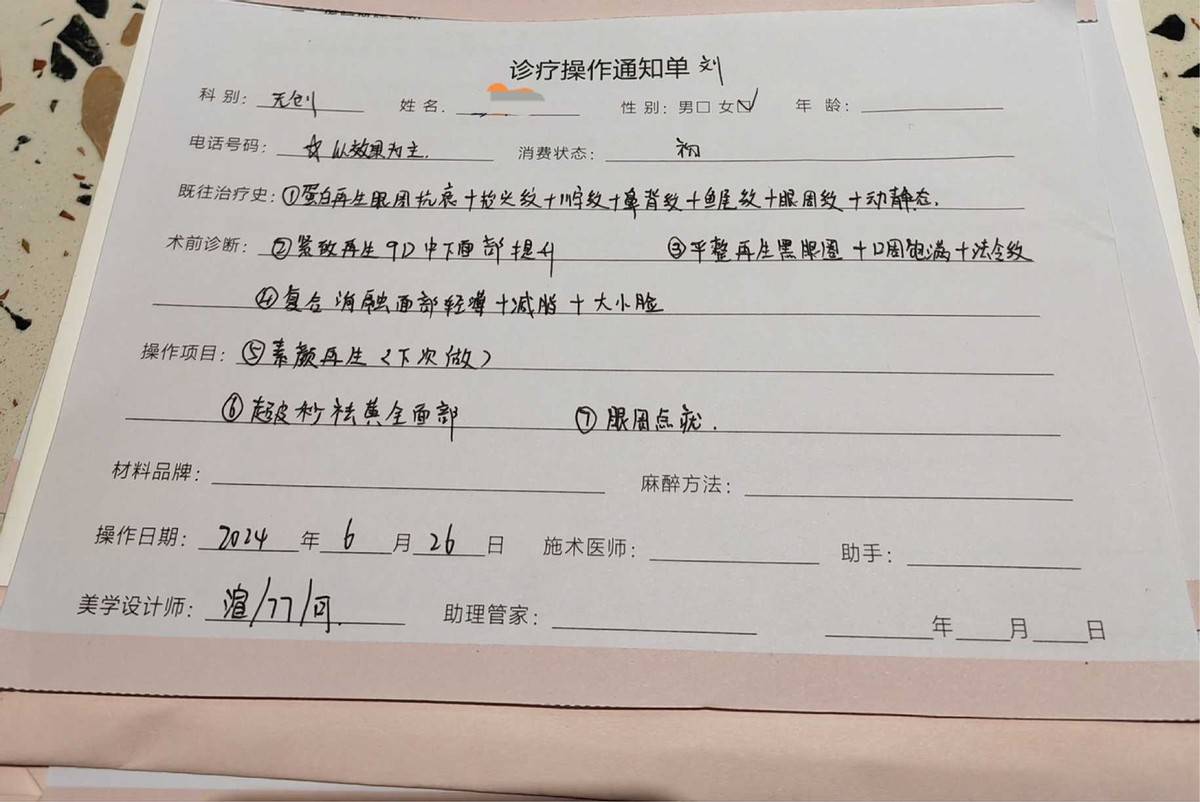 诊疗操作通知单 刘
科别: 无创 姓名. 性别: 男□ 女☑ 年龄:
电话号码: ☆以效果为主. 消费状态: 初
既往治疗史: ①蛋白再生眼周抗衰+抬头纹+川字纹+鼻背纹+鱼尾纹+眼周纹+动静态.
术前诊断: ②紧致再生9D中下面部提升 ③平整再生黑眼圈+口周饱满+法令纹
④复合海融面部轻薄+减脂+大小脸
操作项目: ⑤素颜再生(下次做)
⑥超皮秒祛黄全面部 ⑦眼周点疣.
材料品牌: 麻醉方法:
操作日期: 2024年6月26日 施术医师: 助手:
美学设计师: 渲/77/ 助理管家: 年 月 日